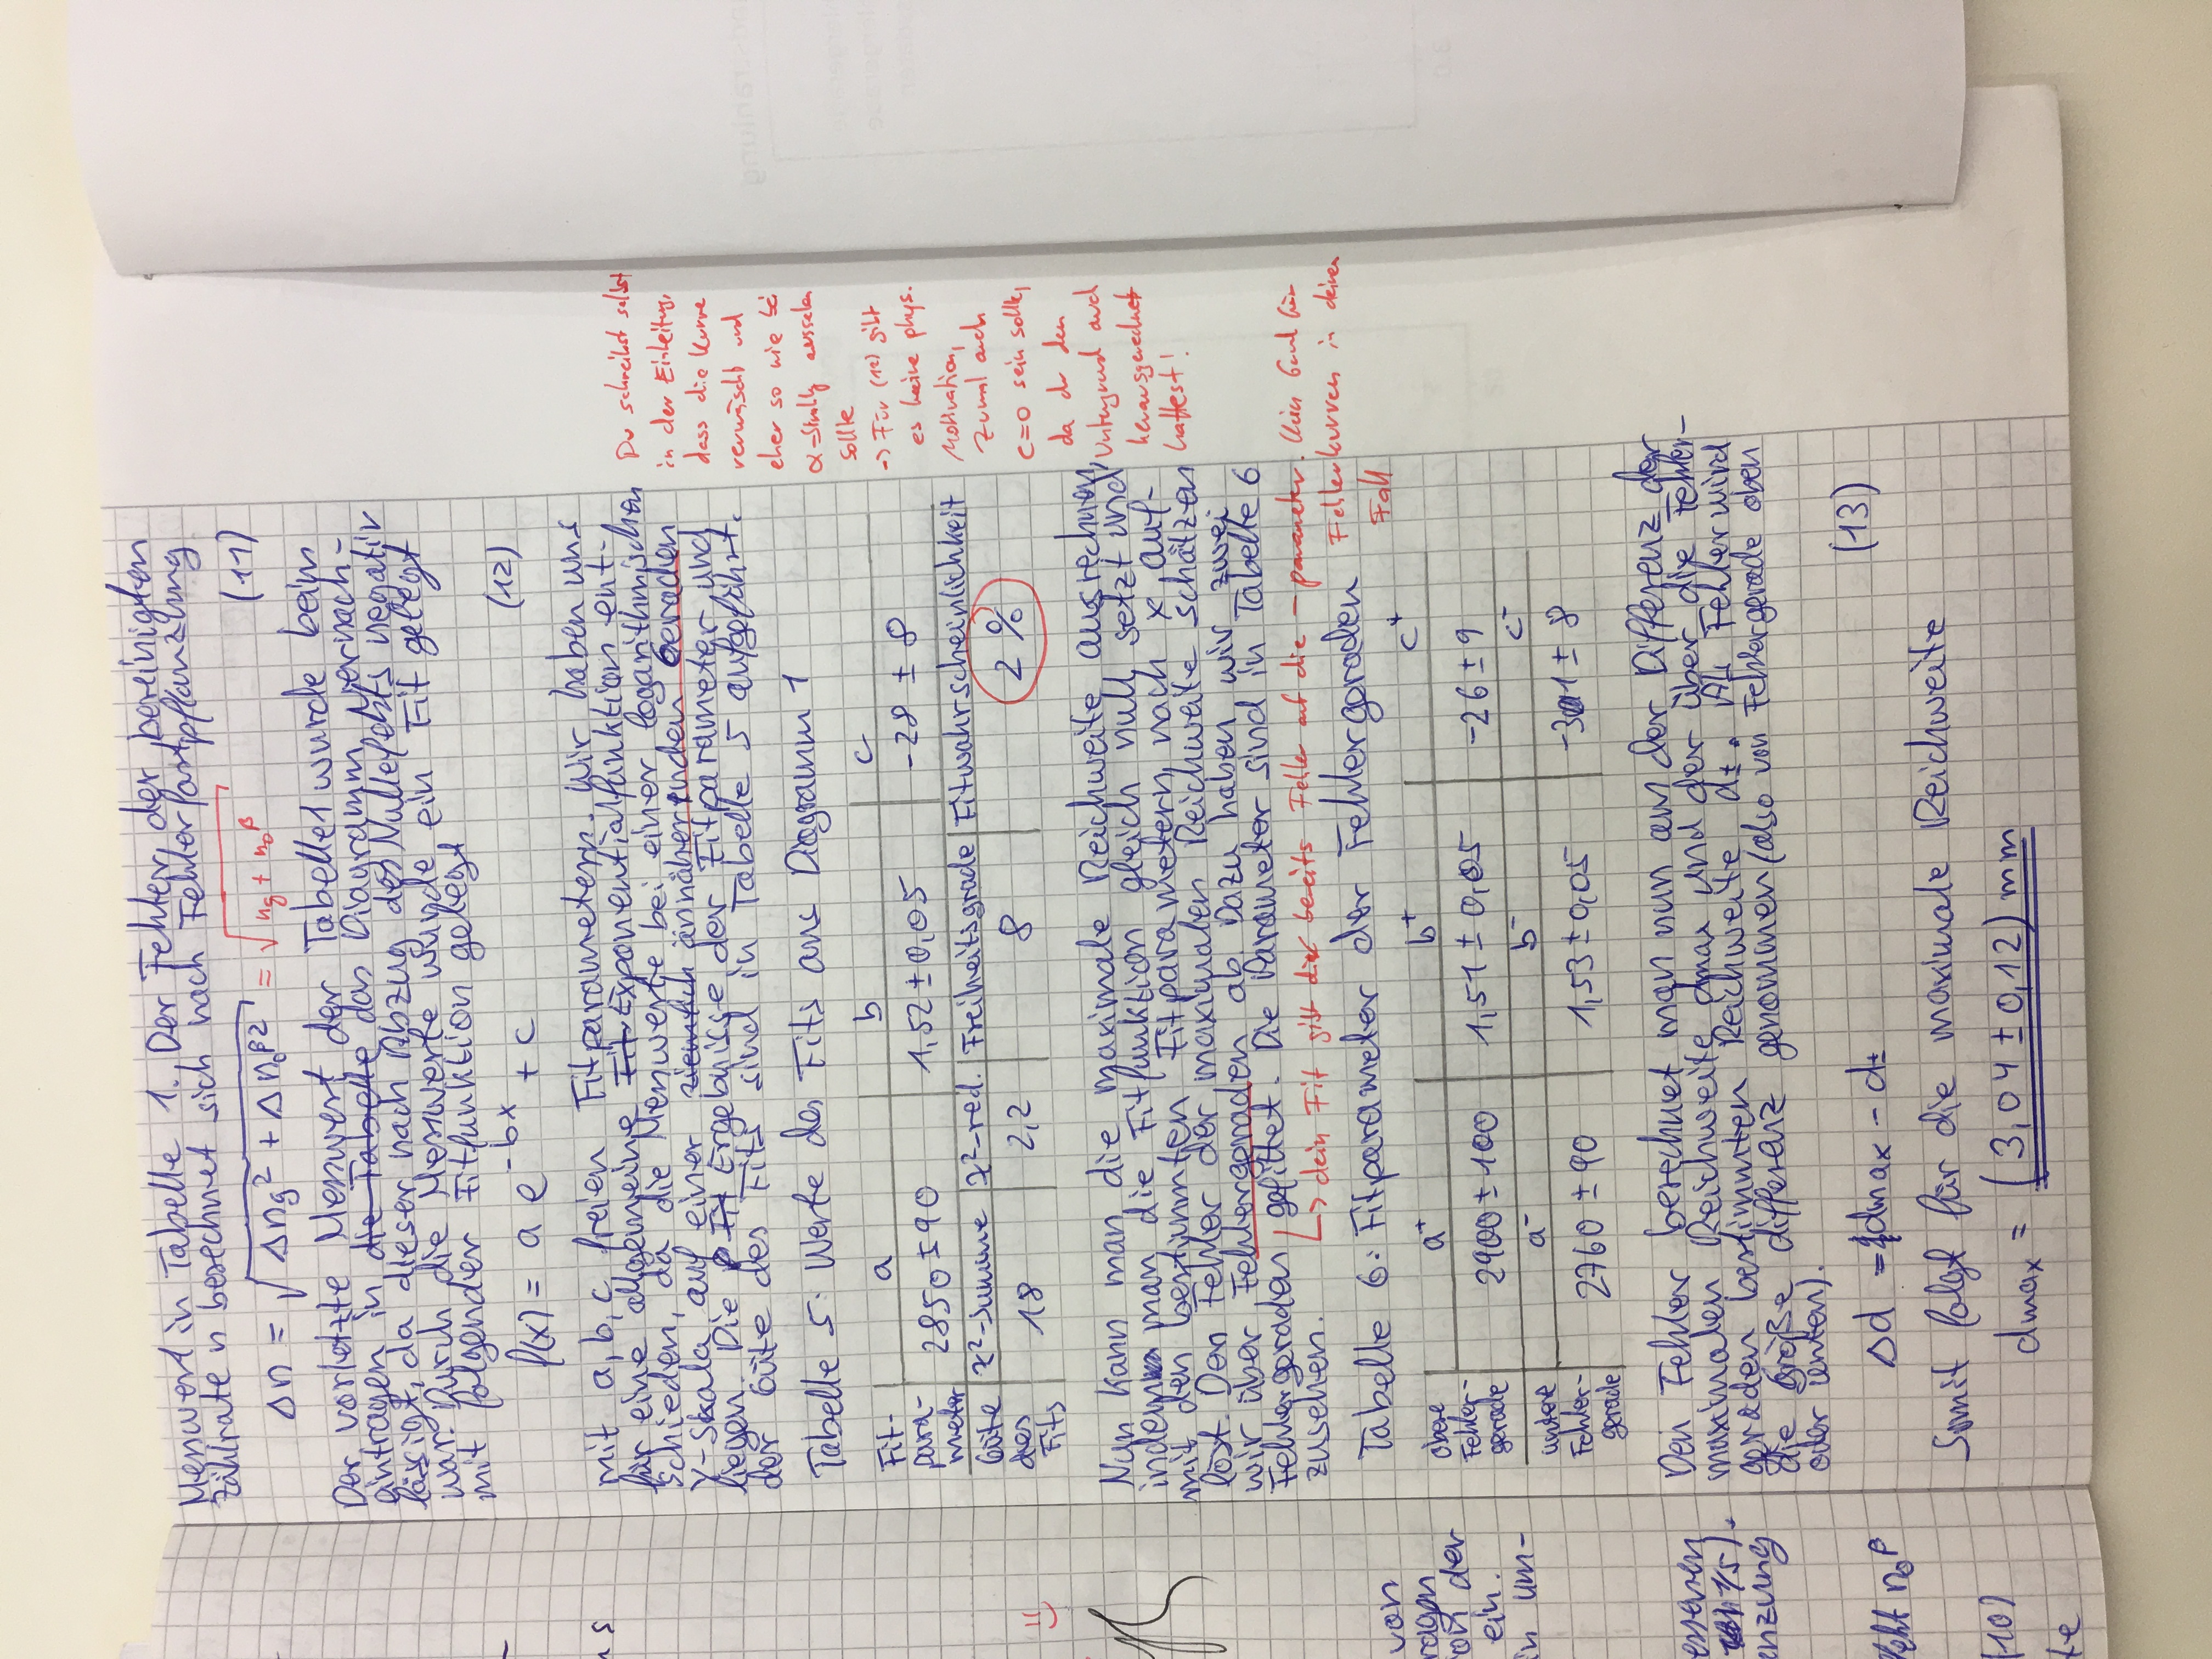 Messwert in Tabelle 1. Der Fehler der bereinigten
Zählrate n berechnet sich nach Fehlerfortpflanzung
Δn = √(Δn_g² + Δn_0^β²) = √(n_g + n_0^β) (11)
Der vorletzte Messwert der Tabelle 1 wurde beim
eintragen in die Tabelle das Diagramm vernach-
lässigt, da dieser nach Abzug des Nulleffekts negativ
war. Durch die Messwerte wurde ein Fit gelegt
mit folgender Fitfunktion gelegt
f(x) = a e^(-bx) + c (12)
mit a, b, c freien Fitparametern. Wir haben uns
für eine allgemeine Fit Exponentialfunktion ent-
schieden, da die Messwerte bei einer logarithmischen
Y-Skala auf einer ziemlich annähernden Geraden
liegen. Die Fit Ergebnisse der Fitparameter und
der Güte des Fits sind in Tabelle 5 aufgeführt.
Du schreibst selbst
in der Einleitung,
dass die Kurve
verwäscht und
eher so wie bei
α-Strahlg aussehen
sollte
-> Für (12) gibt
es keine phys.
Motivation,
zumal auch
c=0 sein sollte,
da du den
Untergrund auch
herausgerechnet
hattest!
Tabelle 5: Werte des Fits aus Diagramm 1
Fit-
para-
meter
a b c
2850 ± 90 1,52 ± 0,05 -28 ± 8
Güte
des
Fits
χ²-Summe χ²-red. Freiheitsgrade Fitwahrscheinlichkeit
18 2,2 8 2 %
Nun kann man die maximale Reichweite ausrechnen,
indem man die Fitfunktion gleich null setzt und
mit den bestimmten Fitparametern nach x auf-
löst. Den Fehler der maximalen Reichweite schätzen
wir über Fehlergeraden ab. Dazu haben wir zwei
Fehlergeraden gefittet. Die Parameter sind in Tabelle 6
zusehen.
-> dein Fit gibt dir bereits Fehler auf die -parameter. Kein Grund für
Fehlerkurven in deinem
Fall
Tabelle 6: Fitparameter der Fehlergeraden
obere
Fehler-
gerade
a⁺ b⁺ c⁺
2900 ± 100 1,51 ± 0,05 -26 ± 9
untere
Fehler-
gerade
a⁻ b⁻ c⁻
2760 ± 90 1,53 ± 0,05 -31 ± 8
Den Fehler berechnet man nun aus der Differenz der
maximalen Reichweite dmax und der über die Fehler-
geraden bestimmten Reichweite d±. Als Fehler wird
die größe differenz genommen (also von Fehlergerade oben
oder unten).
Δd = dmax - d± (13)
Somit folgt für die maximale Reichweite
dmax = (3,04 ± 0,12) mm
von
ragen
on der
ein.
in um-
essenen
1/5).
nzung
n_0^β
(10)
te